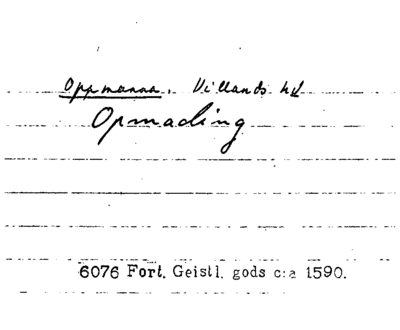 Oppmanna. Villands hd
Opmading
6076 Fort. Geistl. gods c:a 1590.